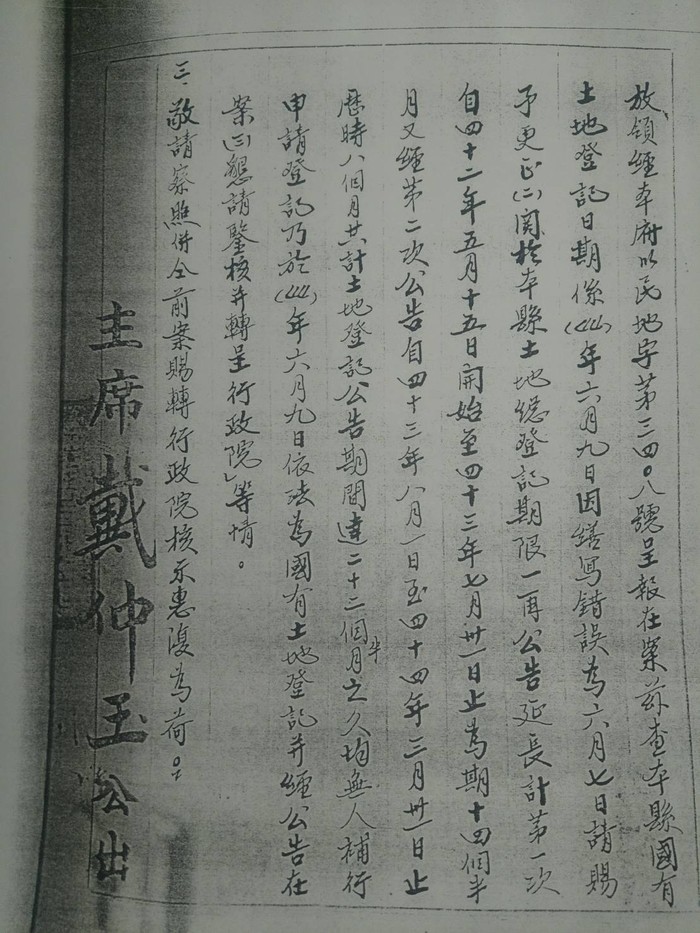 放領經本府以民地字第三四〇八號呈報在案茲查本縣國有
土地登記日期係(44)年六月九日因繕寫錯誤為六月七日請賜
予更正(二)関於本縣土地總登記期限一再公告延長計第一次
自四十二年五月十五日開始至四十三年七月卅一日止為期十四個半
月又經第二次公告自四十三年八月一日至四十四年三月卅一日止
歷時八個月共計土地登記公告期間達二十二個半月之久均無人補行
申請登記乃於(44)年六月九日依法為國有土地登記并經公告在
案(三)懇請鑒核并轉呈行政院」等情。
三、敬請察照併仝前案賜轉行政院核示惠復為荷。
主席戴仲玉公出